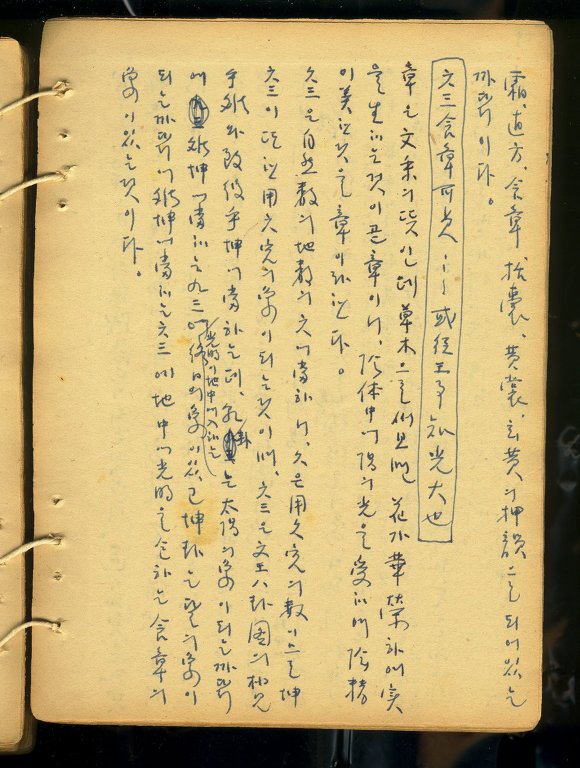 霜、直方、含章、括囊、黃裳、玄黃의 押韻으로 되어있는
까닭이다。
六三含章可貞 … 或從王事 知光大也
章은 文采의 뜻인데 草木으로써 보면 花가 華榮하여 実
을 生하는 것이 곧 章이니, 陰体中에 陽의 光을 受하여 陰精
이 美한 것을 章이라 한다。
六三은 自然数의 地数의 六에 當하니, 六은 用六宮의 数이므로 坤
六三이 또한 用六宮의 象이 되는 것이며, 六三은 文王八卦圖의
坤에 當하는데, 乾卦는 太陽의 象이 되는 까닭
에 坤에 當하는 九三에 終日의 象이 있고 坤卦는 月의 象이
光明이 地中에 入하는
되는 까닭에 坤에 當하는 六三에 地中에 光明을 含하는 含章의
象이 있는 것이다。